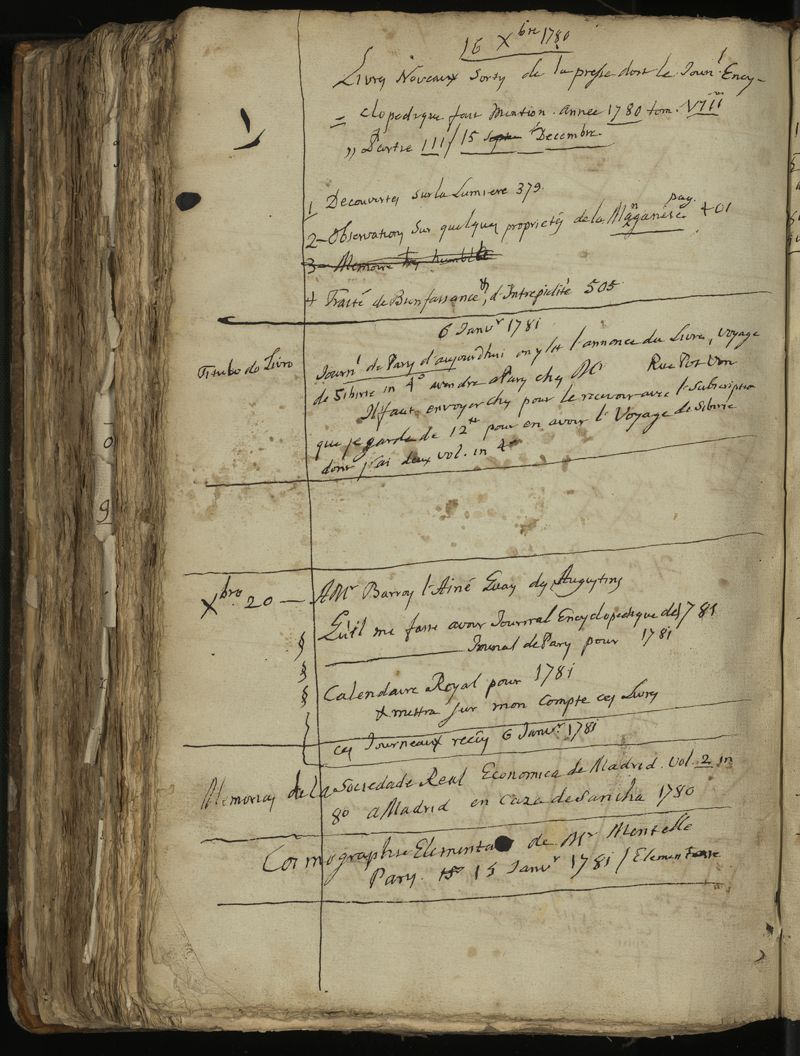 16 Xbre 1780
Livres Noveaux Sorty de la presse dont le Journl Ency-
= clopedique fait Mention. année 1780 tom. VIII
" Partie III / 15 Decembre.
1 Decouvertes sur la Lumiere 379.
2 - Observations Sur quelques proprietés de la Manganese pag. 401
3 - Memoire tres humble
4 Traité de Bienfaissance, d'Intrepidité 505
6 Janvr 1781
Titulo do Livro
Journl de Pary d'aujourdhui on y lit l'annonce du Livre, Voyage
de Siberie in 4o a vendre a Pary chez Mr Rue
Il faut envoyer chez pour le recevoir avec l'Subscription
que je garde de 12tt pour en avoir l'Voyage de Siberie
dont j'ai deux vol. in 4o
Xbro 20 — A Mr Barroy l'Ainé Quay des Augustins
Qu'il me fasse avoir Journal Encyclopedique de 1781
§ Journal de Pary pour 1781
§
§ Calendaire Royal pour 1781
& mettra sur mon Compte ces Livres
ces Journeaux recus 6 Janvr. 1781
Memorias de la Sociedade Real Economica de Madrid. Vol. 2 in
8o a Madrid en Caza de Sancha 1780
Cosmographie Elementa de Mr Mentelle
Pary. 15 Janvr 1781 / Elementaire